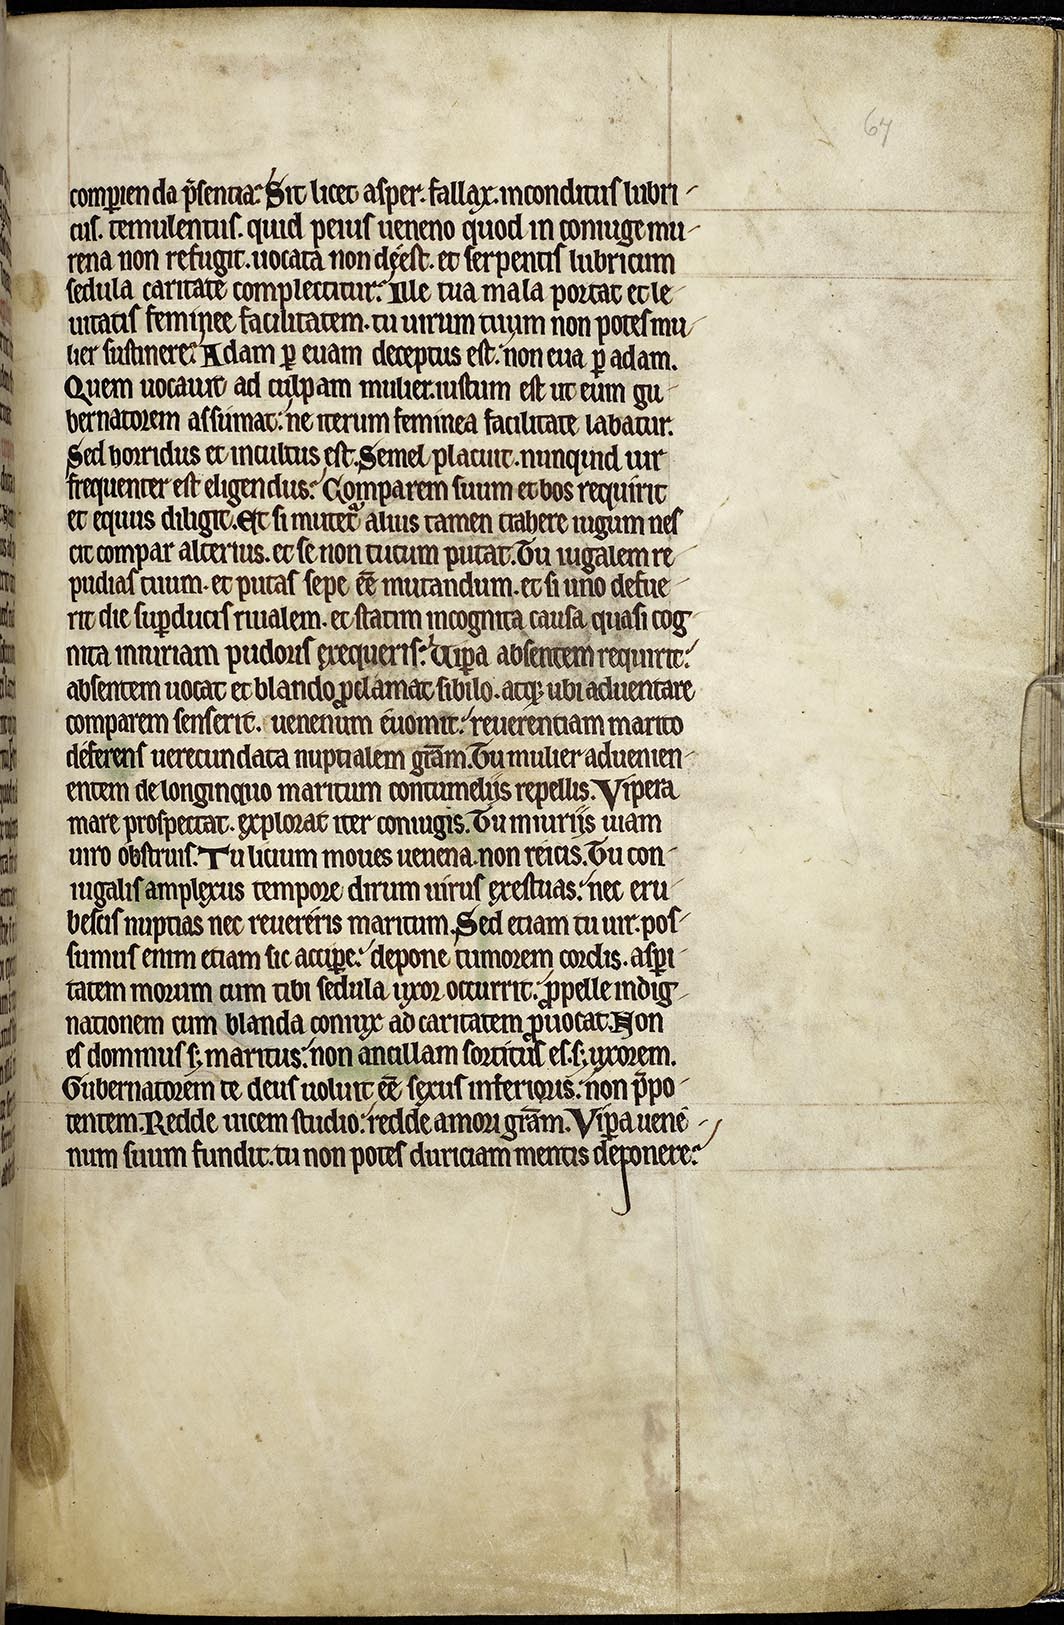 67
comperienda p̄sentia. Sit licet asper. fallax. inconditus lubri-
cus. temulentus. quid peius ueneno quod in coniuge mu-
rena non refugit. uocata non deest. et serpentis lubricum
sedula caritate complectitur. Ille tua mala portat et le-
uitatis feminee facilitatem. tu uirum tuum non potes mu-
lier sustinere. Adam ꝑ euam deceptus est. non eua ꝑ adam.
Quem uocauit ad culpam mulier. iustum est ut eum gu-
bernatorem assumat. ne iterum feminea facilitate labatur.
Sed horridus et incultus est. Semel placuit. nunquid uir
frequenter est eligendus. Comparem suum et bos requirit
et equus diligit. Et si mutet᷑ alius tamen trahere iugum nes
cit compar alterius. et se non tutum putat. Tu iugalem re-
pudias tuum. et putas sepe eē mutandum. et si uno defue-
rit die suꝑducis riualem. et statim incognita causa quasi cog-
nita iniuriam pudoris exequeris. Uiꝑa absentem requirit.
absentem uocat et blando ꝓclamat sibilo. atq; ubi aduentare
comparem senserit. uenenum euomit. reuerentiam marito
deferens uerecundata nuptialem grām. Tu mulier aduenien-
entem de longinquo maritum contumeliis repellis. Vipera
mare prospectat. explorat iter coniugis. Tu iniuriis uiam
uiro obstruis. Tu licium moues uenena. non reicis. Tu con-
iugalis amplexus tempore dirum uirus exestuas. nec eru-
bescis nuptias nec reuereris maritum. Sed etiam tu uir. pos-
sumus enim etiam sic acciꝑe. depone tumorem cordis. asꝑi-
tatem morum cum tibi sedula uxor occurrit. ꝓpelle indig-
nationem cum blanda coniux ad caritatem ꝓuocat. Non
es dominus s; maritus. non ancillam sortitus es. s; uxorem.
Gubernatorem te deus uoluit eē sexus inferioris. non p̄po-
tentem. Redde uicem studio. redde amori grām. Viꝑa uene-
num suum fundit. tu non potes duriciam mentis deponere.